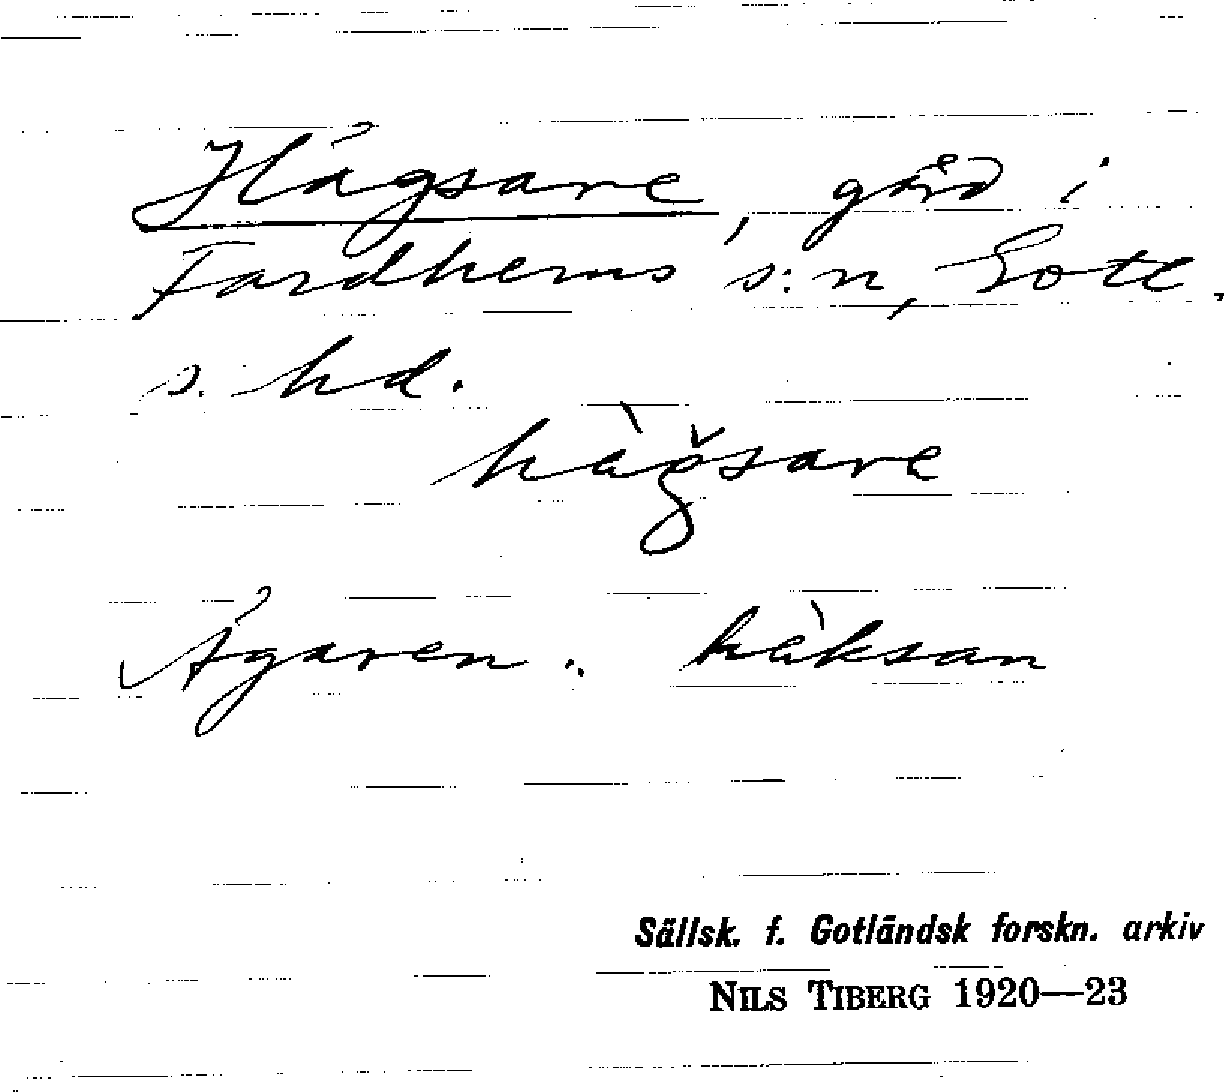 Hägsare, gård i
Fardhems s:n, Gotl.
s. hd.
hàğsare
Ägaren: hàksan
Sällsk. f. Gotländsk forskn. arkiv
NILS TIBERG 1920—23